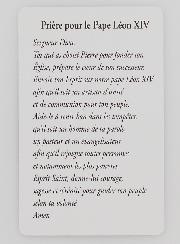 Prière pour le Pape Léon XIV
Seigneur Dieu,
Toi qui as choisi Pierre pour fonder ton
Église, prépare le cœur de son successeur
Envoie ton Esprit sur notre pape Léon XIV
afin qu'il soit un artisan d'unité
et de communion pour ton peuple.
Aide-le à tenir bon dans les tempêtes,
qu'il soit un homme de ta parole
un pasteur et un évangélisateur
afin qu'il rejoigne toute personne
et notamment les plus pauvres
Esprit Saint, donne-lui courage,
sagesse et pour guider ton peuple
selon ta volonté
Amen.